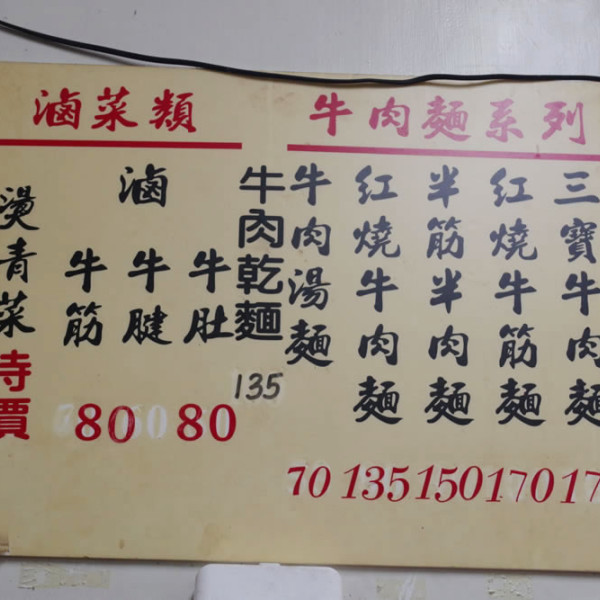 牛肉麵系列
三寶牛肉麵
紅燒牛筋麵
170
半筋半肉麵
150
紅燒牛肉麵
135
牛肉湯麵
70
牛肉乾麵
135
滷菜類
滷
牛肚
80
牛腱
牛筋
80
燙青菜
特價